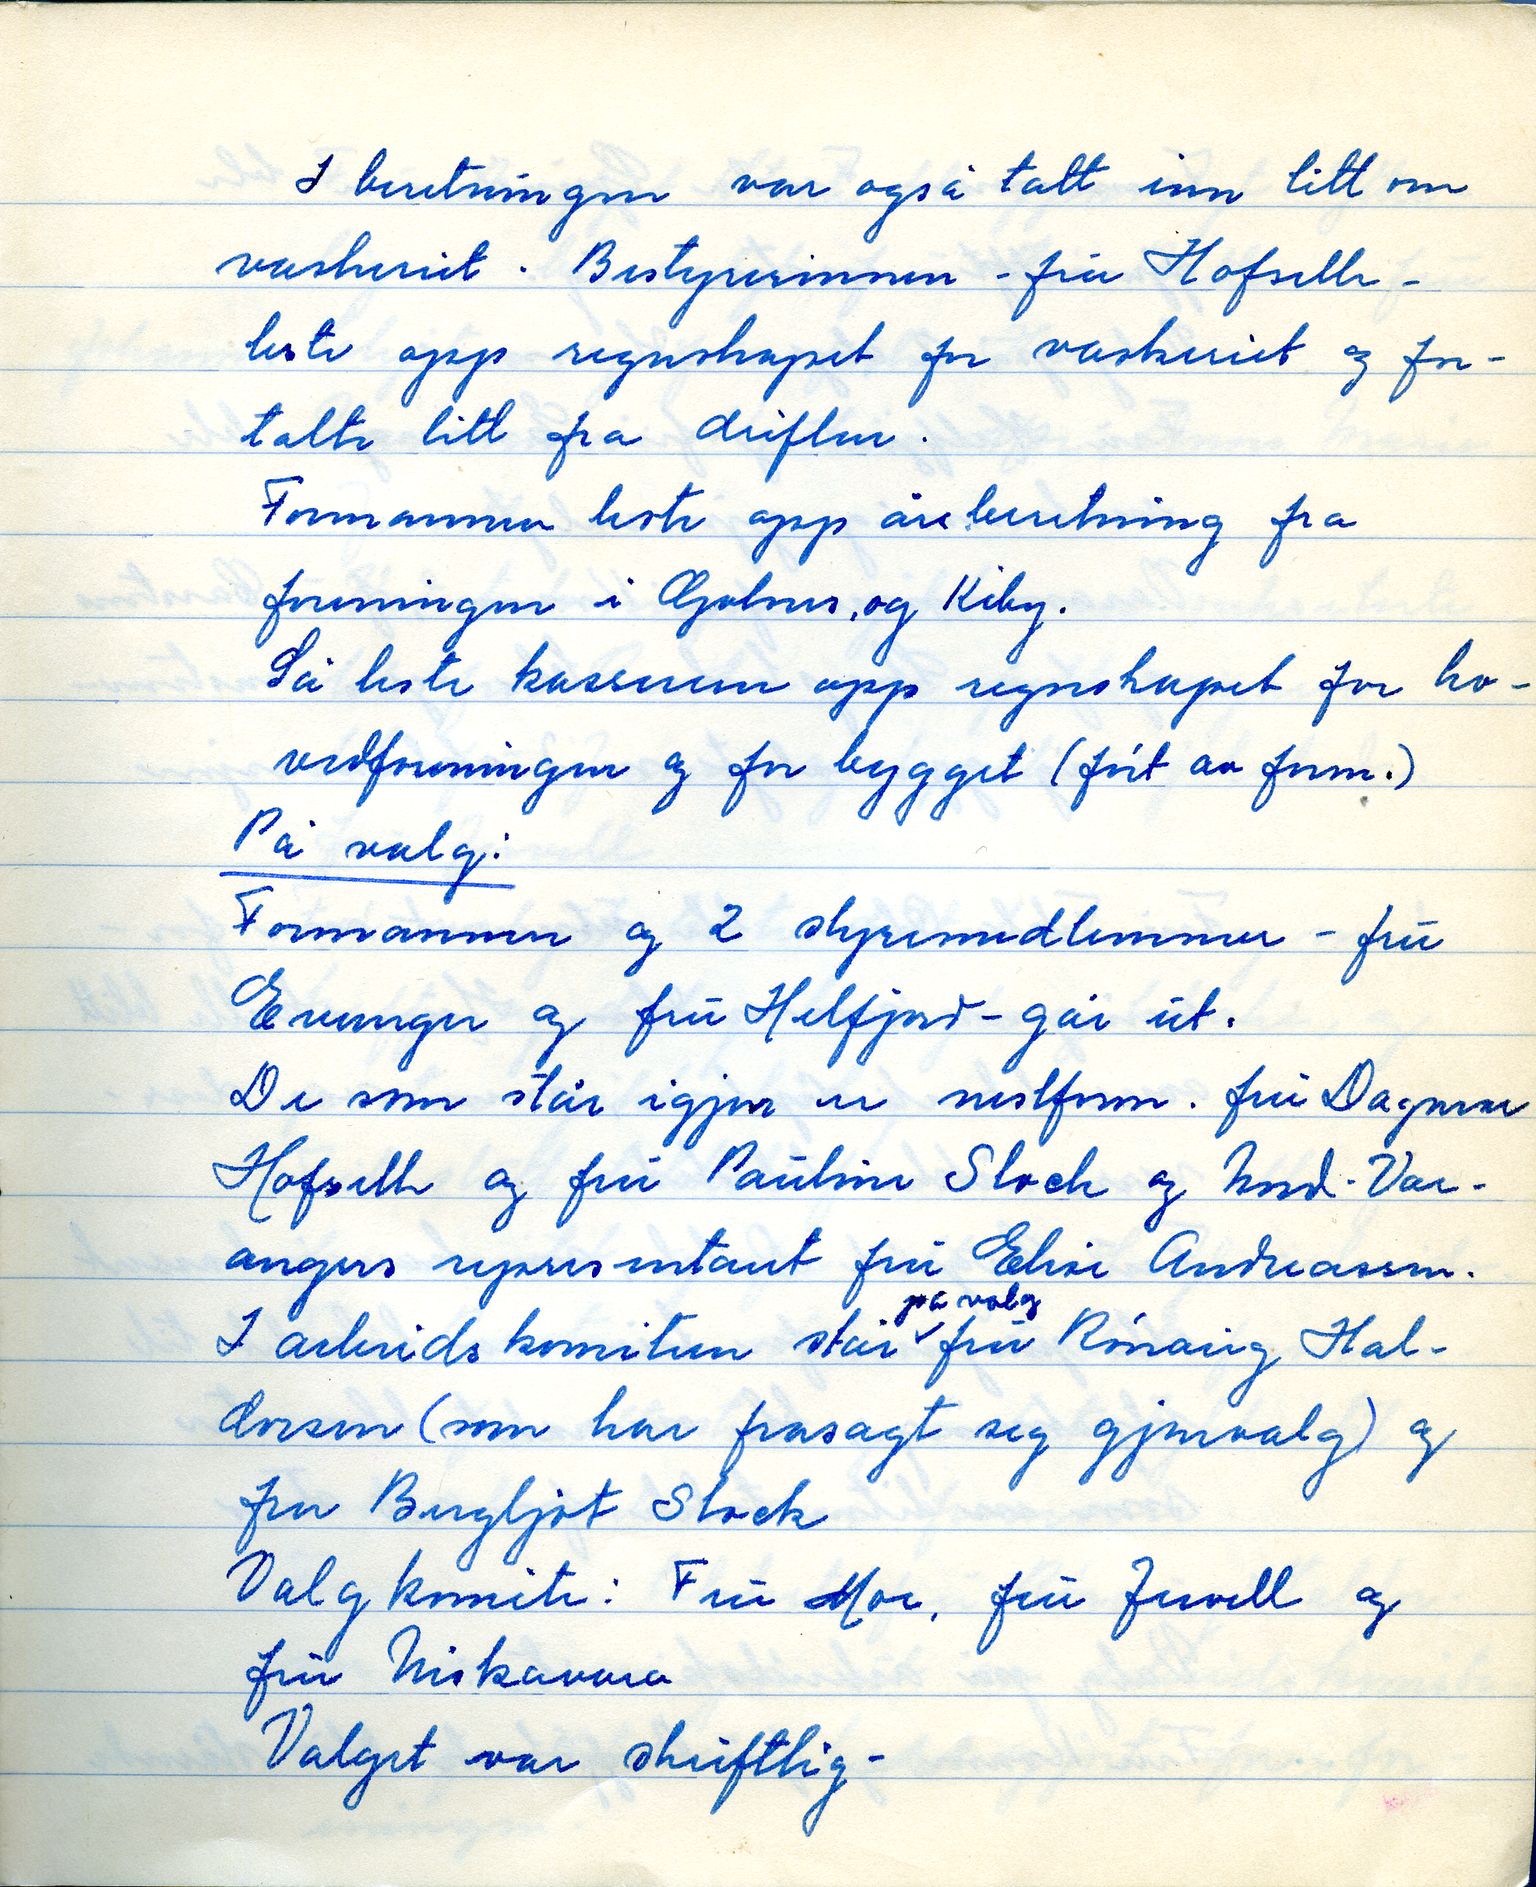 I beretningen var også tatt inn litt om
vaskeriet. Bestyrerinnen - frú Hofseth -
leste opp regnskapet for vaskeriet og for-
talte litt fra driften.
Formannen leste opp årsberetning fra
foreningen i Golnes, og Kiby.
Så leste kassereren opp regnskapet for ho-
vedforeningen og for bygget (ført av form.)
På valg:
Formannen og 2 styremedlemmer - frú
Evanger og frú Helfjord - går út.
De som står igjen er nestform. frú Dagmar
Hofseth og frú Paúline Stock og Nord-Var-
angers representant frú Elise Andreassen.
I arbeidskomiteen står på valg frú Rónaúg Hal-
dorsen (som har frasagt seg gjenvalg) og
fru Bergljot Stock
Valgkomite: Frú Moe, frú Jervell og
frú Niskavara
Valget var skriftlig -